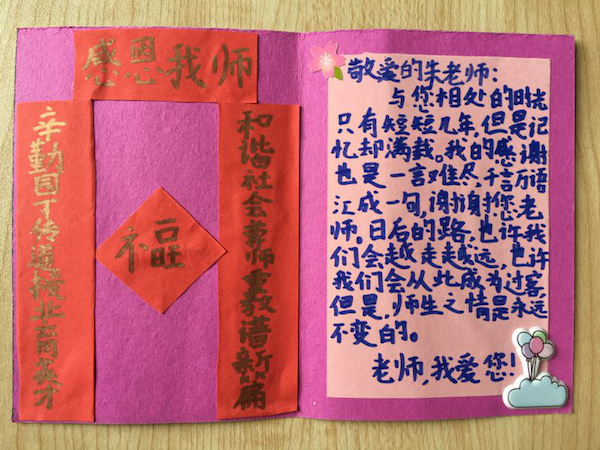 感恩我师
辛勤园丁传道授业育英才
福
和谐社会尊师重教谱新篇
敬爱的朱老师:
与您相处的时光
只有短短几年,但是记
忆却满载。我的感谢
也是一言难尽,千言万语
汇成一句,谢谢您,老
师。日后的路,也许我
们会越走越远,也许
我们会从此成为过客,
但是,师生之情是永远
不变的。
老师,我爱您!